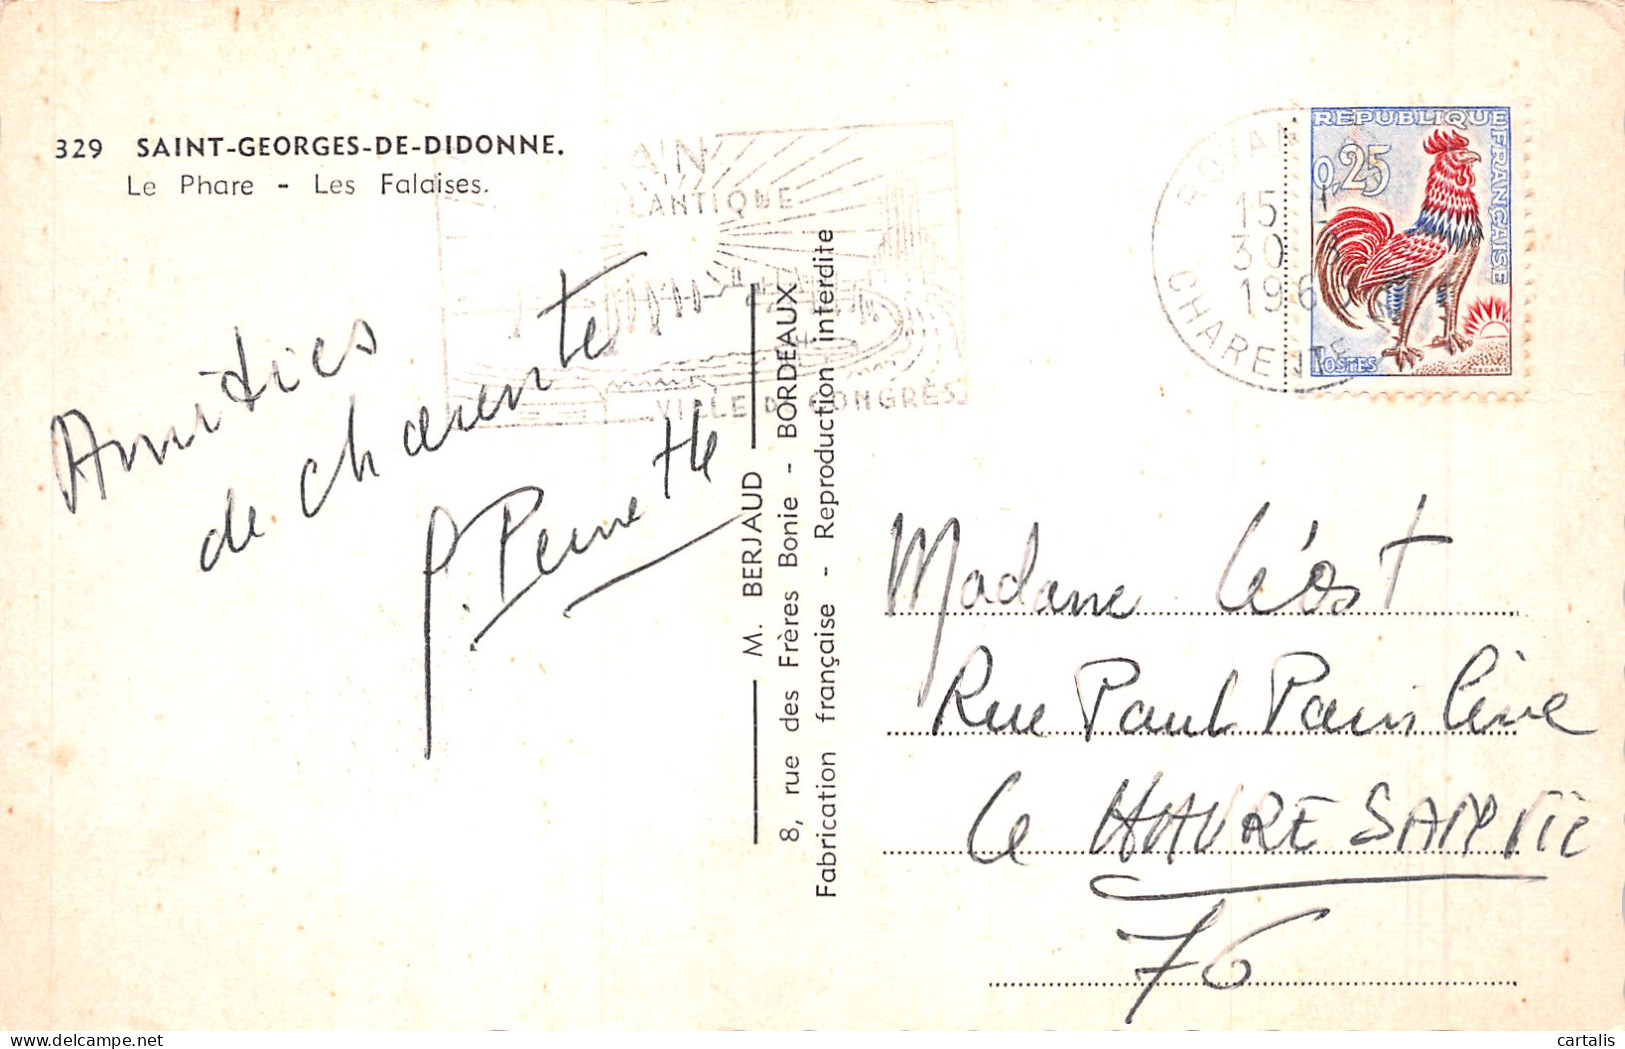 329 SAINT-GEORGES-DE-DIDONNE.
Le Phare - Les Falaises.
Amitiés
de charente
P. Perrette
M. BERJAUD
8, rue des Frères Bonie - BORDEAUX
Fabrication française - Reproduction interdite
VILLE DE CONGRÈS
ROYAN
15
30
196
CHARENTE
REPUBLIQUE
FRANÇAISE
0,25
POSTES
DECARIS
Madame
Rue Paul
Le HAVRE SANVIC
76
cartalis